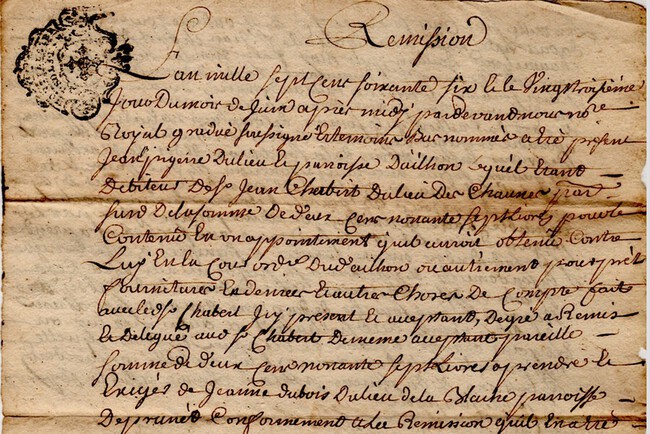 Remission
L'an mille sept cens soixante six & le vingt troizième
Jour du mois de Juin après midy pardevand nous no.re
Royal gradué soussigné et temoins bas nommés a été présent
Jean du lieu & paroisse d'ailhon lequel etant
debiteur de s.r Jean Chabert du lieu des Chaunes
de la somme de deux cens nonante sept livres pour le
Contenu En un appointement qu'il auroit obtenu contre
Luy En la Cour ord.re dud. ailhon ou autrement pour prêt
fournitures En denrées Et autres Choses De Compte fait
avec led. s.r Chabert Icy présent Et aceptant, De gré a Remis
Et Délégué aud. s.r Chabert De meme aceptant pareille
somme de deux cens nonante sept Livres a prendre Et
Exiger de Jeanne dubois Du lieu de la Blache paroisse
De prunet Conformement a La Remission quil En a été